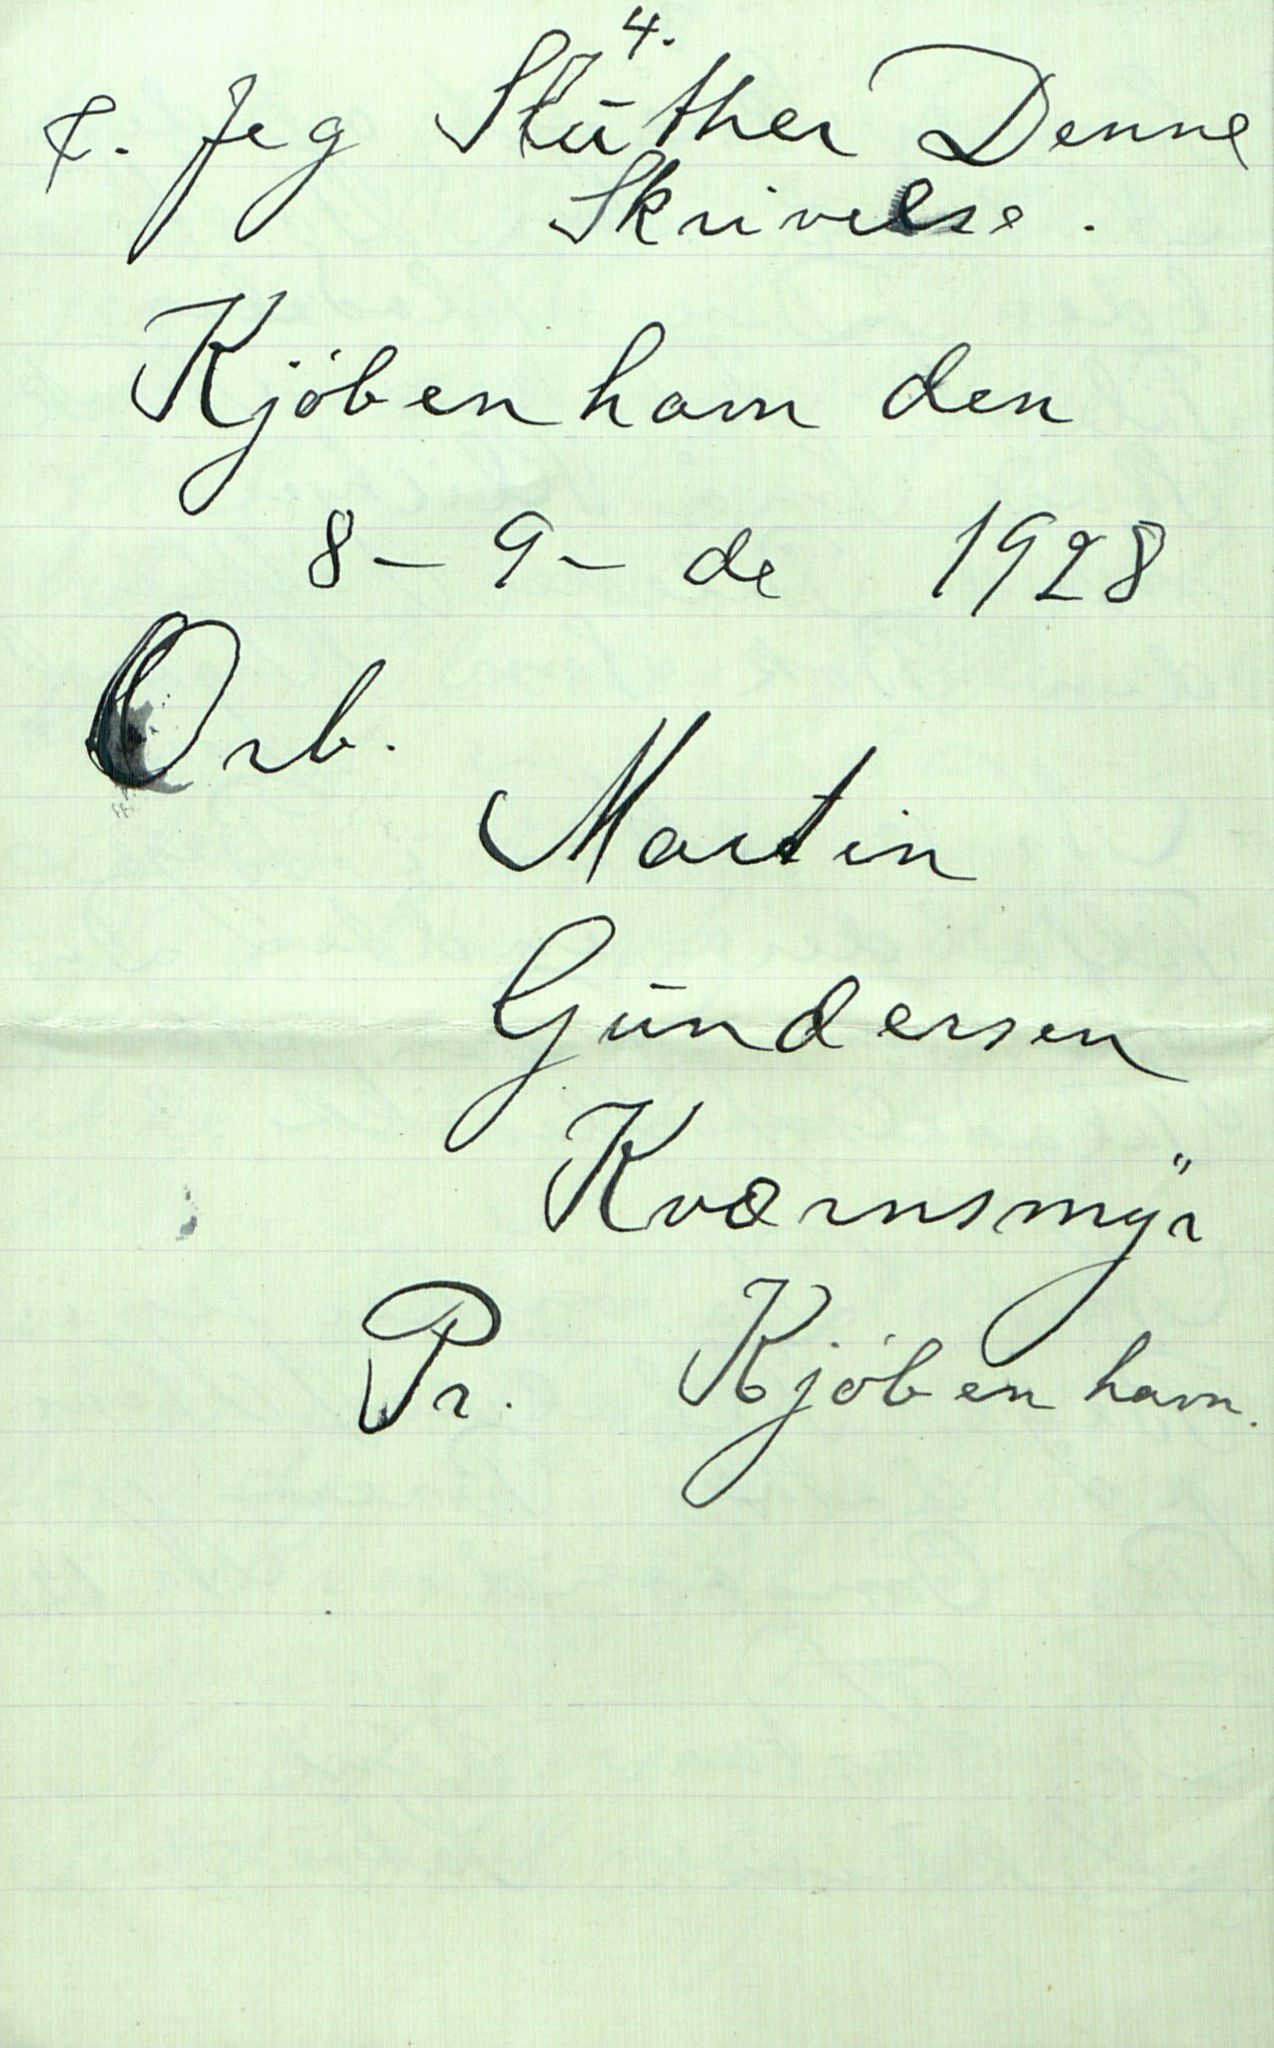 4.
&. Jeg Slüther Denne
Skrivelse.
Kjöbenhavn den
8 - 9 - de 1928
Orb.
Martin
Gündersen
Kværnsmÿr
Pr. Kjöbenhavn.